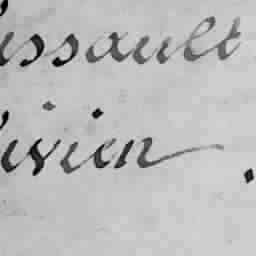 issault
ivien .